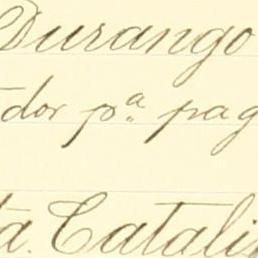 Durango
dor pª pag
ta. Catali